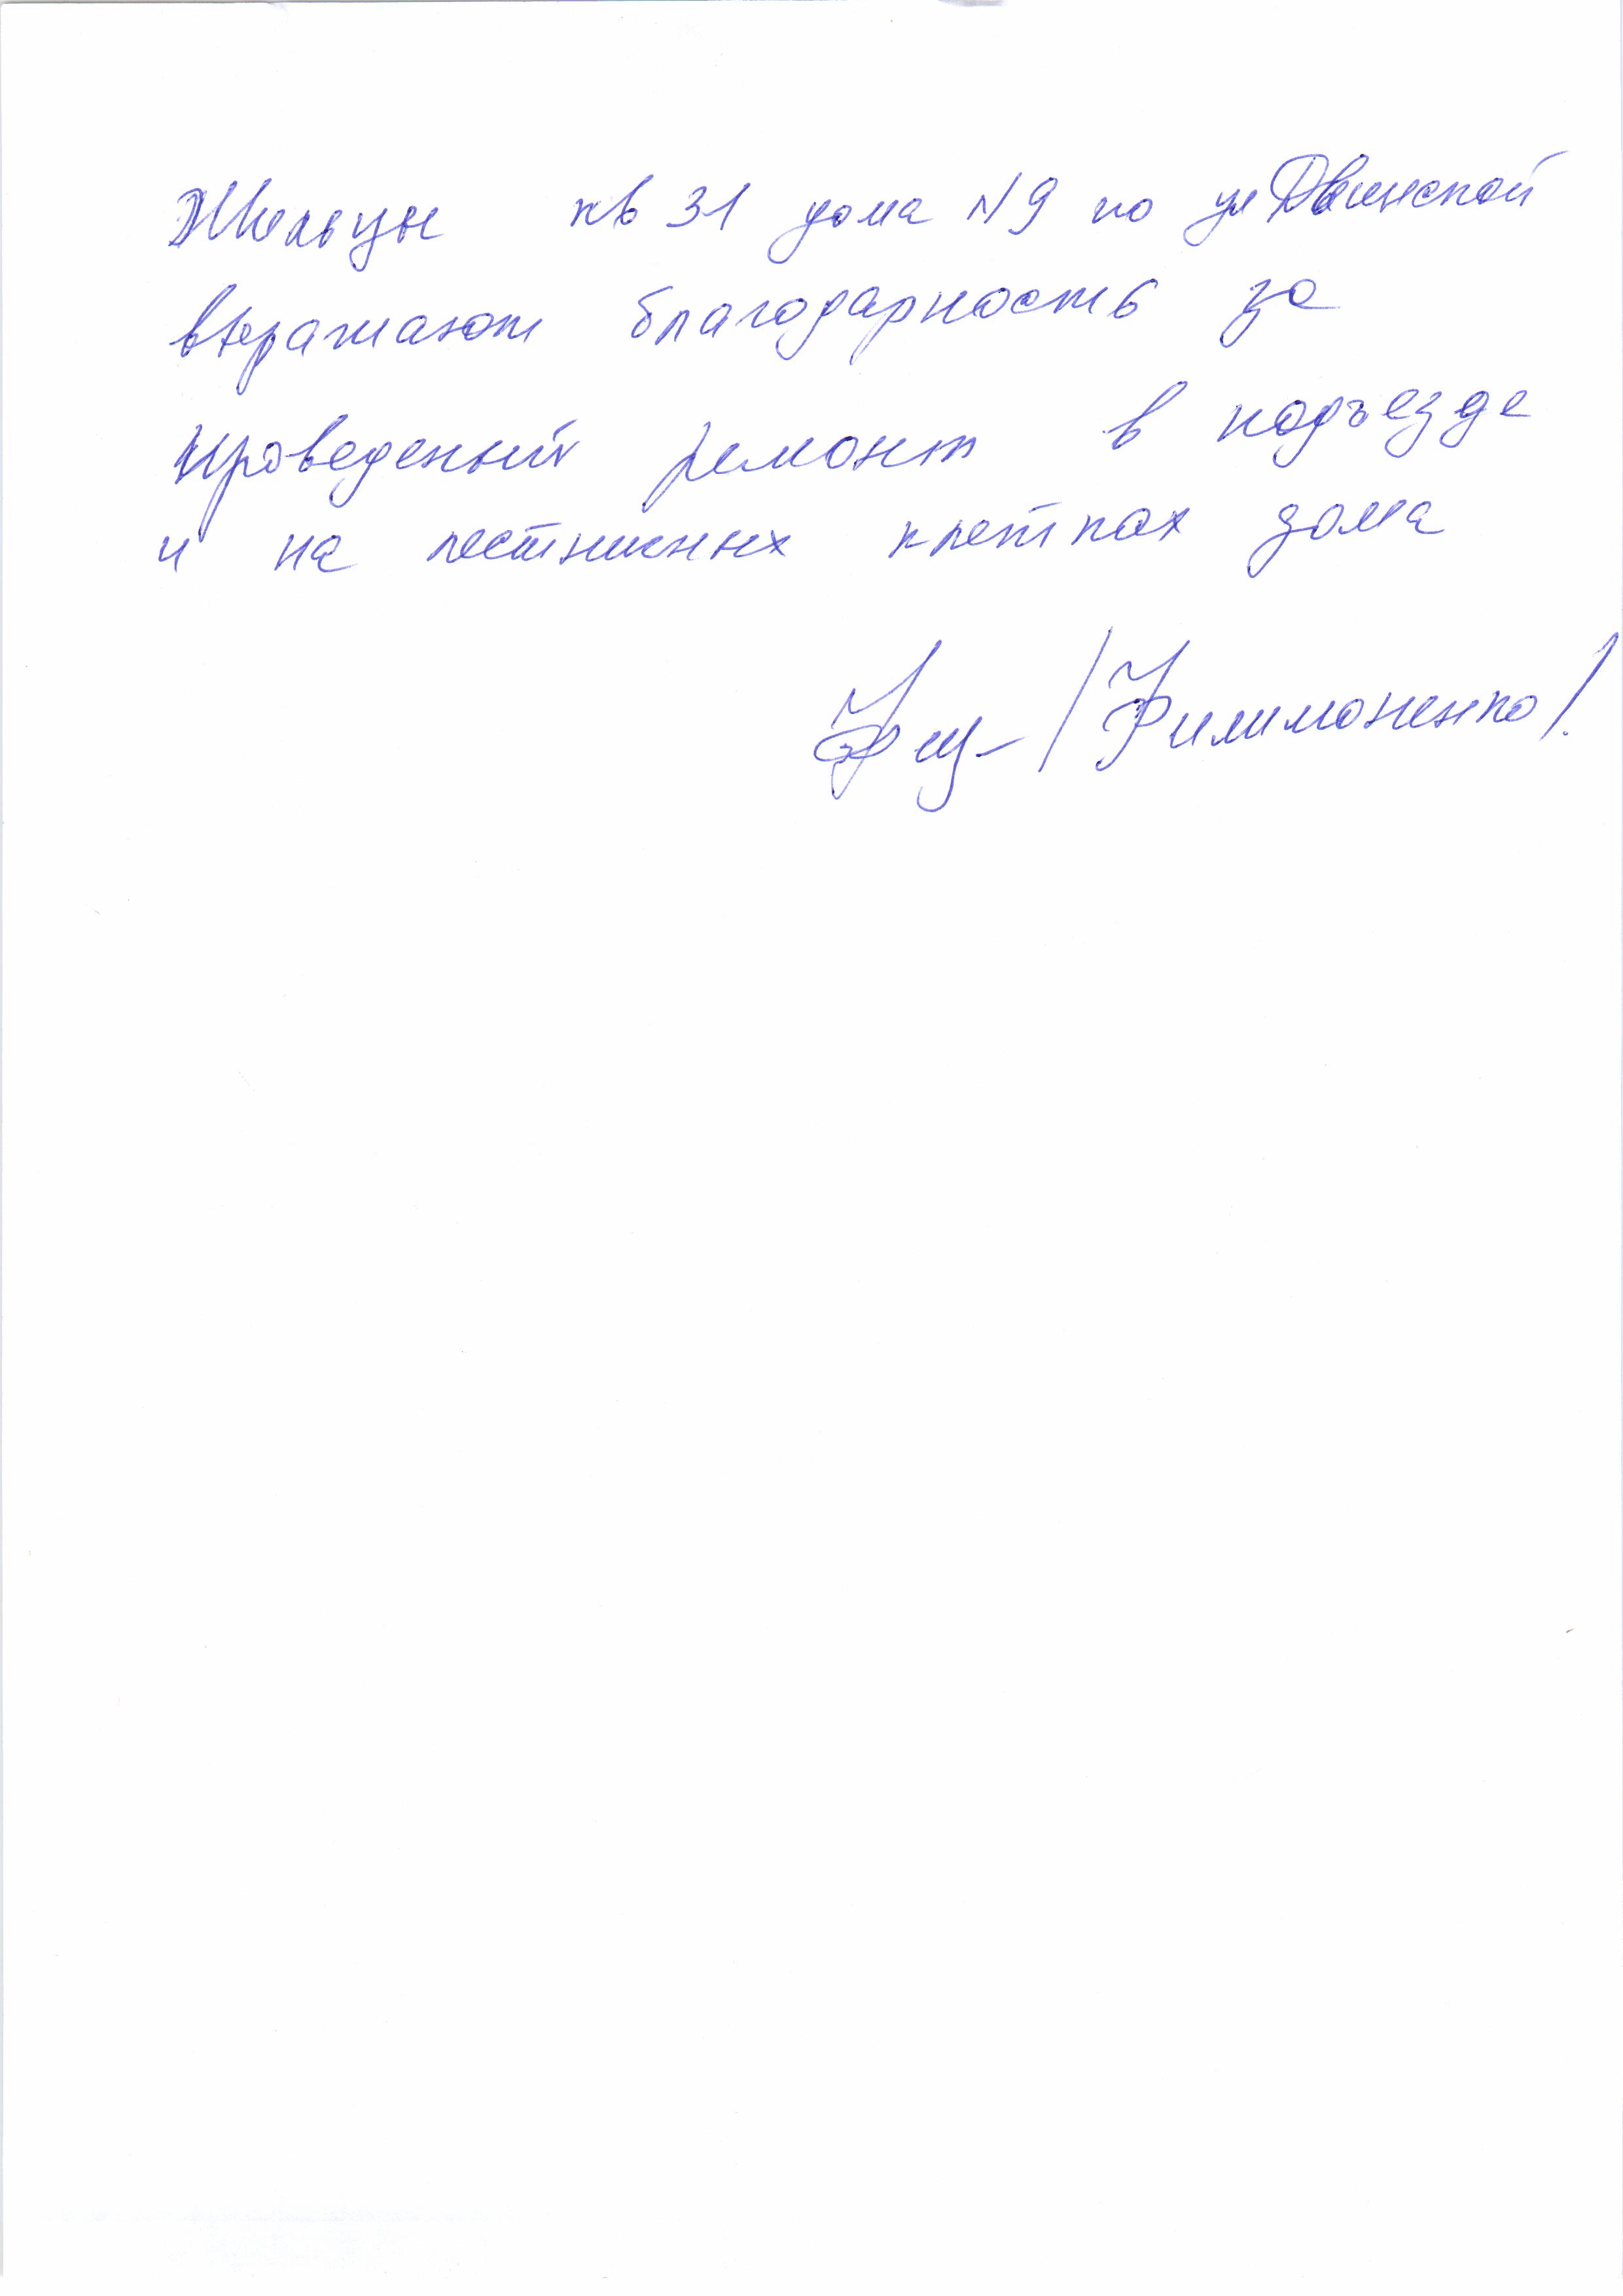 Жильцы кв 31 дома N 9 по ул Двинской
выражают благодарность за
проведеный ремонт в подъезде
и на лестничных клетках дома
/Филимоненко/